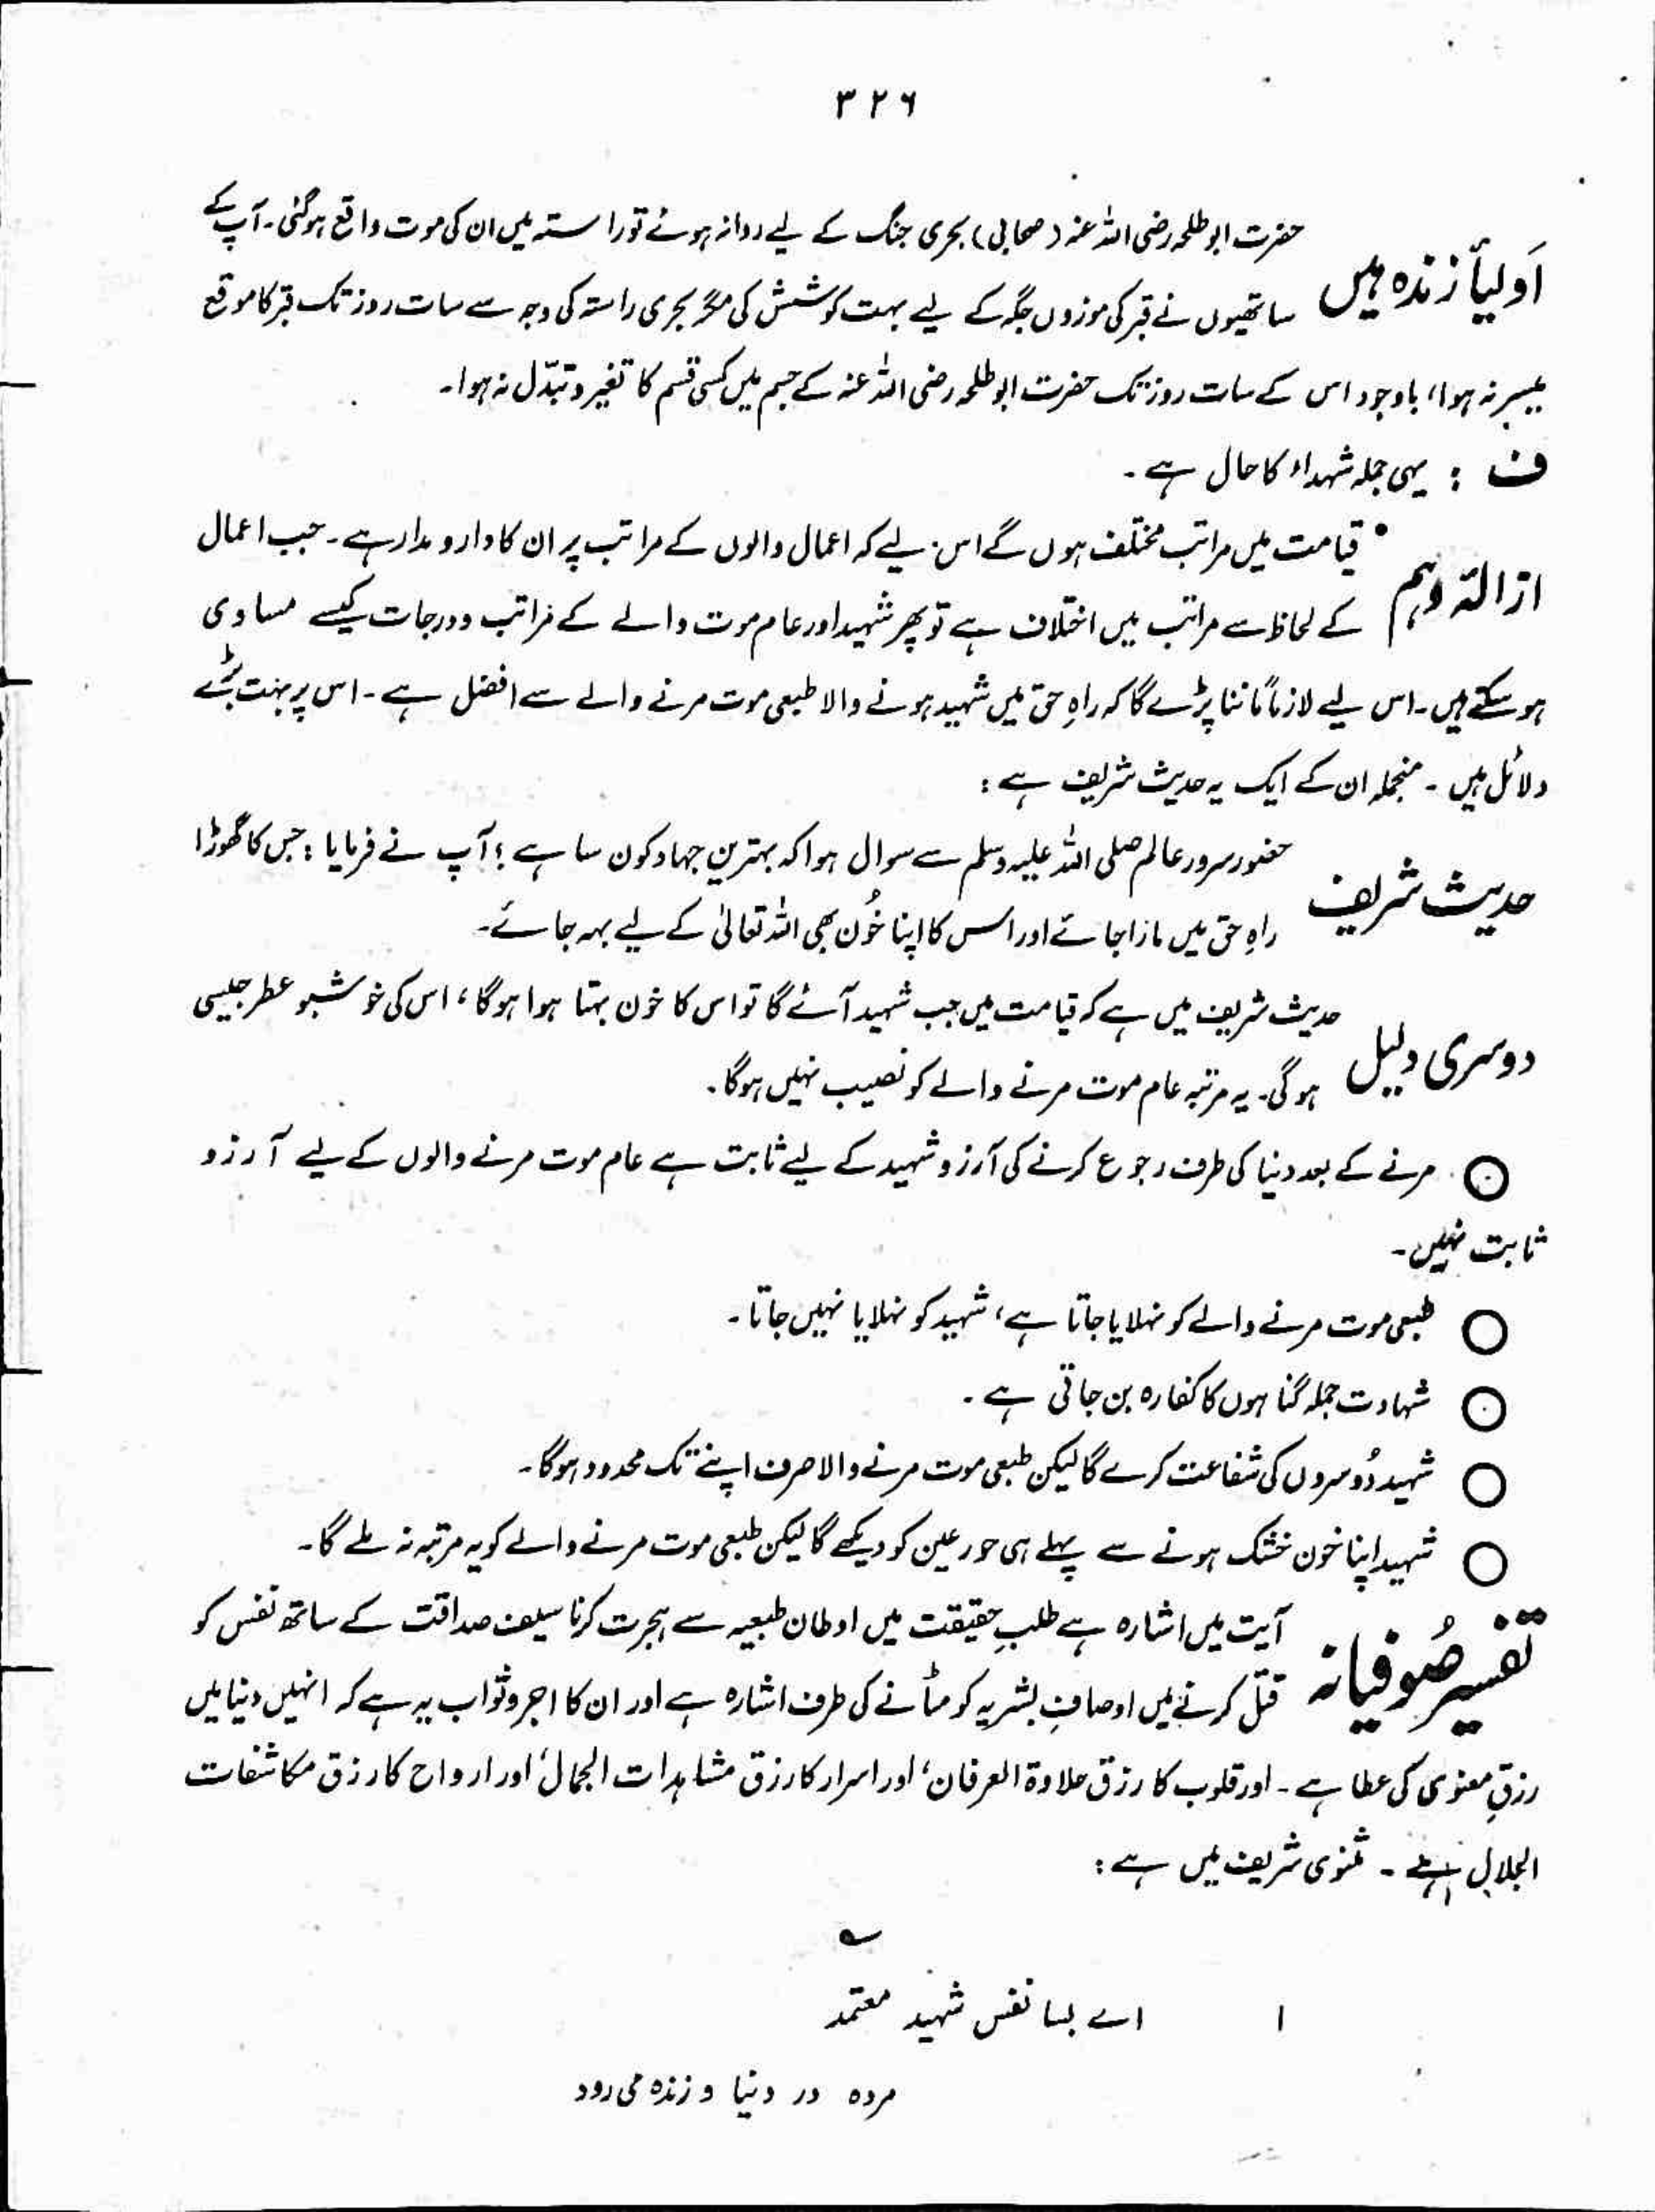 ۳۲۶
حضرت ابوطلحہ رضی اللہ عنہ (صحابی) بحری جنگ کے لیے روانہ ہوئے تو راستہ میں ان کی موت واقع ہوگئی۔ آپ کے
اَولیأ زندہ ہیں
ساتھیوں نے قبر کی موزوں جگہ کے لیے بہت کوشش کی مگر بحری راستہ کی وجہ سے سات روز تک قبر کا موقع
میسر نہ ہوا، باوجود اس کے سات روز تک حضرت ابوطلحہ رضی اللہ عنہ کے جسم میں کسی قسم کا تغیر و تبدّل نہ ہوا۔
ف : یہی جملہ شہداء کا حال ہے۔
قیامت میں مراتب مختلف ہوں گے اس لیے کہ اعمال والوں کے مراتب پر ان کا دارومدار ہے۔ جب اعمال
ازالۂ وہم
کے لحاظ سے مراتب میں اختلاف ہے تو پھر شہید اور عام موت والے کے مراتب و درجات کیسے مساوی
ہو سکتے ہیں۔ اس لیے لازماً ماننا پڑے گا کہ راہِ حق میں شہید ہونے والا طبعی موت مرنے والے سے افضل ہے۔ اس پر بہت بڑے
دلائل ہیں۔ منجملہ ان کے ایک یہ حدیث شریف ہے :
حضور سرور عالم صلی اللہ علیہ وسلم سے سوال ہوا کہ بہترین جہاد کون سا ہے؟ آپ نے فرمایا : جس کا گھوڑا
حدیث شریف
راہِ حق میں مارا جائے اور اس کا اپنا خُون بھی اللہ تعالیٰ کے لیے بہہ جائے۔
حدیث شریف میں ہے کہ قیامت میں جب شہید آئے گا تو اس کا خون بہتا ہوا ہوگا، اس کی خوشبو عطر جیسی
دوسری دلیل
ہوگی۔ یہ مرتبہ عام موت مرنے والے کو نصیب نہیں ہوگا۔
○ مرنے کے بعد دنیا کی طرف رجوع کرنے کی آرزو شہید کے لیے ثابت ہے عام موت مرنے والوں کے لیے آرزو
ثابت نہیں۔
○ طبعی موت مرنے والے کو نہلایا جاتا ہے، شہید کو نہلایا نہیں جاتا۔
○ شہادت جملہ گناہوں کا کفارہ بن جاتی ہے۔
○ شہید دُوسروں کی شفاعت کرے گا لیکن طبعی موت مرنے والا صرف اپنے تک محدود ہوگا۔
○ شہید اپنا خون خشک ہونے سے پہلے ہی حور عین کو دیکھے گا لیکن طبعی موت مرنے والے کو یہ مرتبہ نہ ملے گا۔
آیت میں اشارہ ہے طلبِ حقیقت میں اوطان طبعیہ سے ہجرت کرنا سیف صداقت کے ساتھ نفس کو
تفسیر صُوفیانہ
قتل کرنے میں اوصافِ بشریہ کو مٹانے کی طرف اشارہ ہے اور ان کا اجر و ثواب یہ ہے کہ انہیں دنیا میں
رزقِ معنوی کی عطا ہے۔ اور قلوب کا رزق حلاوۃ العرفان، اور اسرار کا رزق مشاہدات الجمال، اور ارواح کا رزق مکاشفات
الجلال ہے۔ مثنوی شریف میں ہے :
۱ اے بسا نفس شہید معتمد
مردہ در دنیا و زندہ می رود